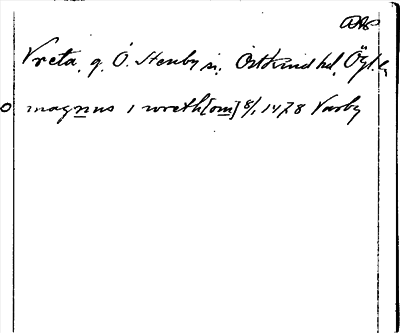 DAS
Vreta, g. Ö. Stenby sn. Östkind hd, Ögl.
magnus i wreth[om] 8/1 1478 Vårby